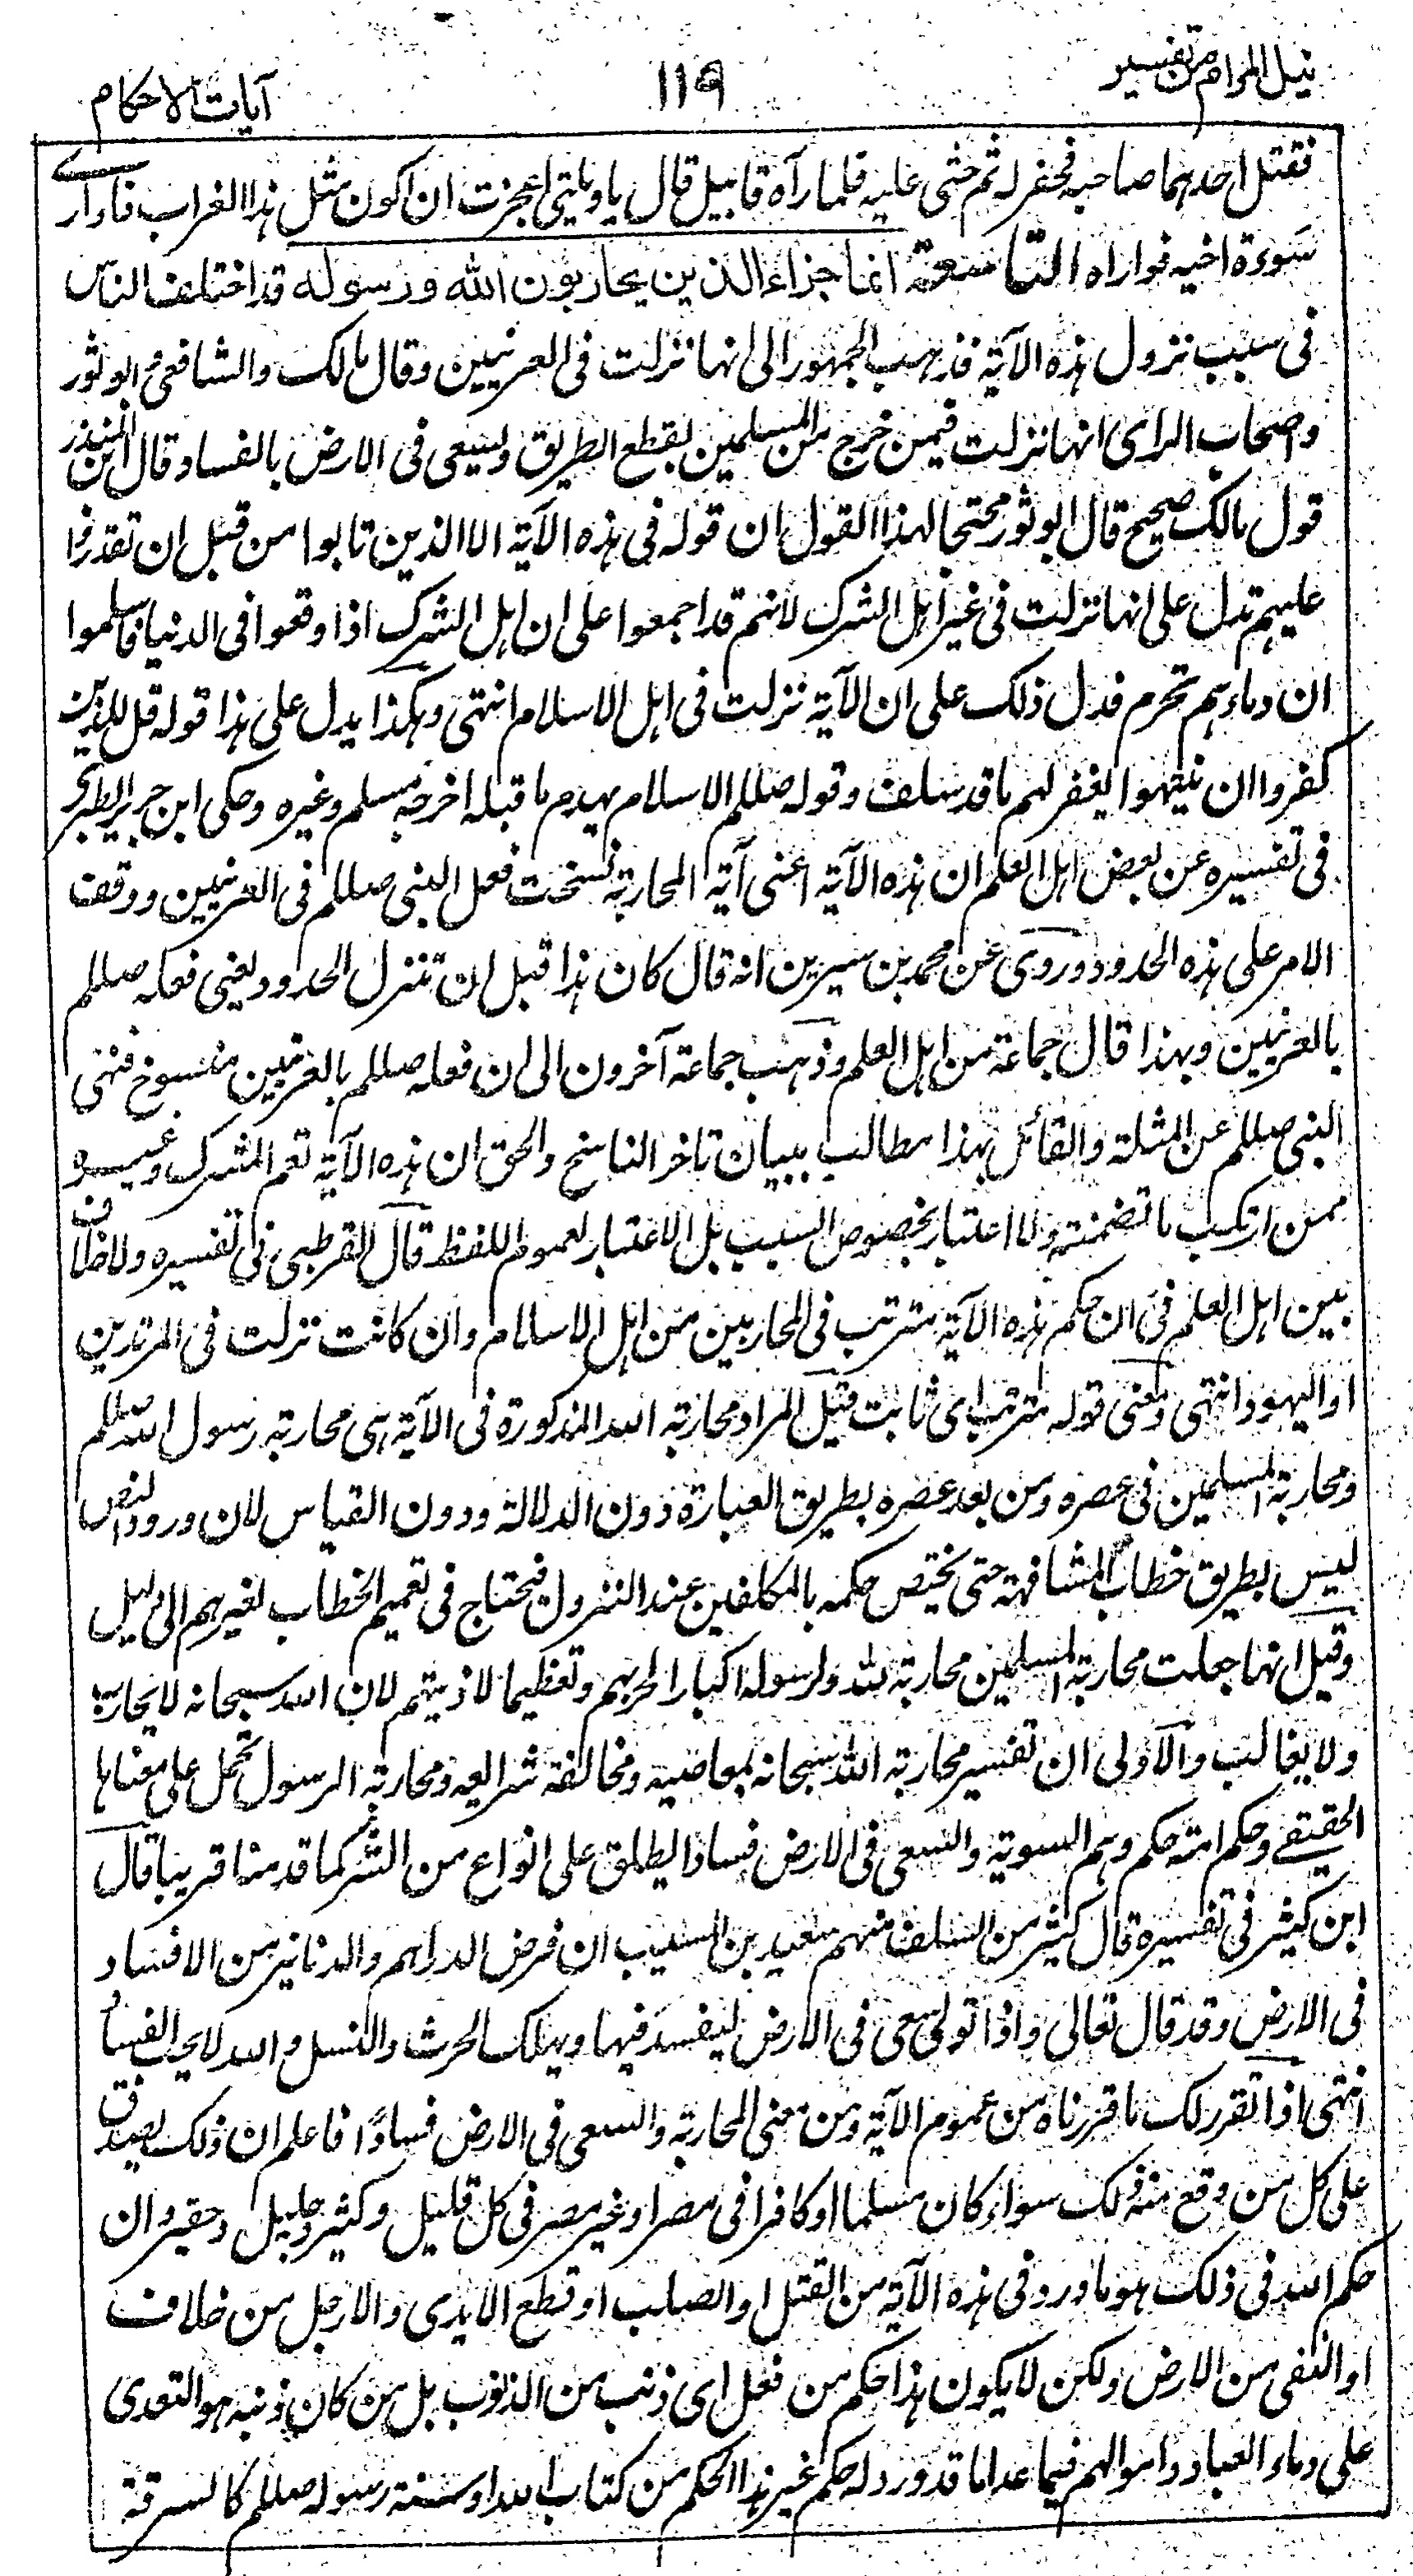 نيل المرام من تفسير
١١٩
آيات الاحكام
فقتل احدهما صاحبه فحفر له ثم حثى عليه فلما رآه قابيل قال يا ويلتى اعجزت ان اكون مثل هذا الغراب فاوارى
سوءة اخيه فواراه التاسعة انما جزاء الذين يحاربون الله ورسوله قد اختلف الناس
فى سبب نزول هذه الآية فذهب الجمهور الى انها نزلت فى العرنيين وقال مالك والشافعى وابو ثور
واصحاب الراى انها نزلت فيمن خرج من المسلمين يقطع الطريق ويسعى فى الارض بالفساد وقال ابن المنذر
قول مالك صحيح قال ابو ثور محتجا لهذا القول ان قوله فى هذه الآية الا الذين تابوا من قبل ان تقدروا
عليهم تدل على انها نزلت فى غير اهل الشرك لانهم قد اجمعوا على ان اهل الشرك اذا وقعوا فى الدنيا فاسلموا
ان دماءهم تحرم فدل ذلك على ان الآية نزلت فى اهل الاسلام انتهى وهكذا يدل على هذا قوله قل للذين
كفروا ان ينتهوا يغفر لهم ما قد سلف وقوله صللم الاسلام يهدم ما قبله اخرجه مسلم وغيره وحكى ابن جرير الطبرى
فى تفسيره عن بعض اهل العلم ان هذه الآية اعنى آية المحاربة نسخت فعل النبى صللم فى العرنيين ووقف
الامر على هذه الحدود وروى عن محمد بن سيرين انه قال كان هذا قبل ان تنزل الحدود يعنى فعله صللم
بالعرنيين وبهذا قال جماعة من اهل العلم وذهب جماعة آخرون الى ان فعله صللم بالعرنيين منسوخ فنهى
النبى صللم عن المثلة والقائل بهذا مطالب ببيان تاخر الناسخ والحق ان هذه الآية تعم المشرك وغيره
ممن ارتكب ما تضمنته ولا اعتبار بخصوص السبب بل الاعتبار لعموم اللفظ قال القرطبى فى تفسيره ولا خلاف
بين اهل العلم فى ان حكم هذه الآية مترتب فى المحاربين من اهل الاسلام وان كانت نزلت فى المرتدين
او اليهود انتهى ومعنى قوله مترتب اى ثابت قيل المراد محاربة الله المذكورة فى الآية هى محاربة رسول الله صللم
ومحاربة المسلمين فى عصره ومن بعد عصره بطريق العبارة دون الدلالة ودون القياس لان ورود النص
ليس بطريق خطاب المشافهة حتى يختص حكمه بالمكلفين عند النزول فيحتاج فى تعميم الخطاب لغيرهم الى دليل
وقيل انها جعلت محاربة المسلمين محاربة لله ولرسوله اكبارا لحربهم وتعظيما لاذيتهم لان الله سبحانه لا يحارب
ولا يغالب والاولى ان تفسير محاربة الله سبحانه بمعاصيه ومخالفة شرائعه ومحاربة الرسول تحمل على معناها
الحقيقى وحكم امته حكمه وهم اسوته والسعى فى الارض فسادا يطلق على انواع من الشر كما قدمنا قريبا قال
ابن كثير فى تفسيره قال كثير من السلف منهم سعيد بن المسيب ان قرض الدراهم والدنانير من الافساد
فى الارض وقد قال تعالى واذا تولى سعى فى الارض ليفسد فيها ويهلك الحرث والنسل والله لا يحب الفساد
انتهى اذا تقرر لك ما قررناه من عموم الآية ومن معنى المحاربة والسعى فى الارض فسادًا فاعلم ان ذلك يصدق
على كل من وقع منه ذلك سواء كان مسلما او كافرا فى مصر او غير مصر فى كل قليل وكثير وجليل وحقير وان
حكم الله فى ذلك هو ما ورد فى هذه الآية من القتل او الصلب او قطع الايدى والارجل من خلاف
او النفى من الارض ولكن لا يكون هذا حكم من فعل اى ذنب من الذنوب بل من كان ذنبه هو التعدى
على دماء العباد واموالهم فيما عدا ما قد ورد له حكم غير هذا الحكم من كتاب الله او سنة رسوله صللم كالسرقة